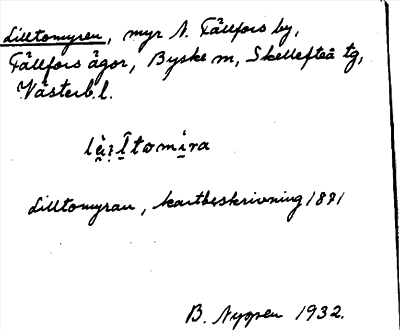 Lilltomyren, myr N. Fällfors by,
Fällfors ägor, Byske m, Skellefteå tg,
Västerb. l.
Lilltomyran, kartbeskrivning 1891
B. Nyper 1932.